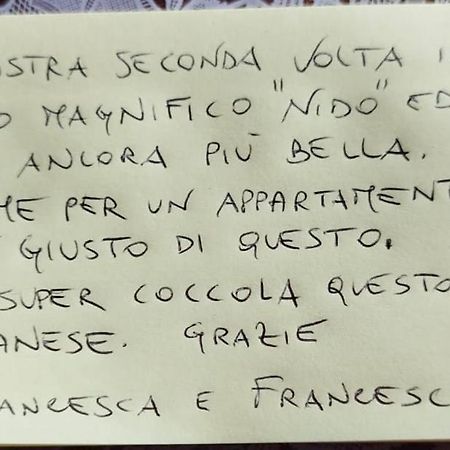 OSTRA SECONDA VOLTA I
O MAGNIFICO "NIDO" ED
ANCORA PIÙ BELLA.
ME PER UN APPARTAMENT
GIUSTO DI QUESTO.
SUPER COCCOLA QUESTO
ANESE. GRAZIE
ANCESCA E FRANCESC